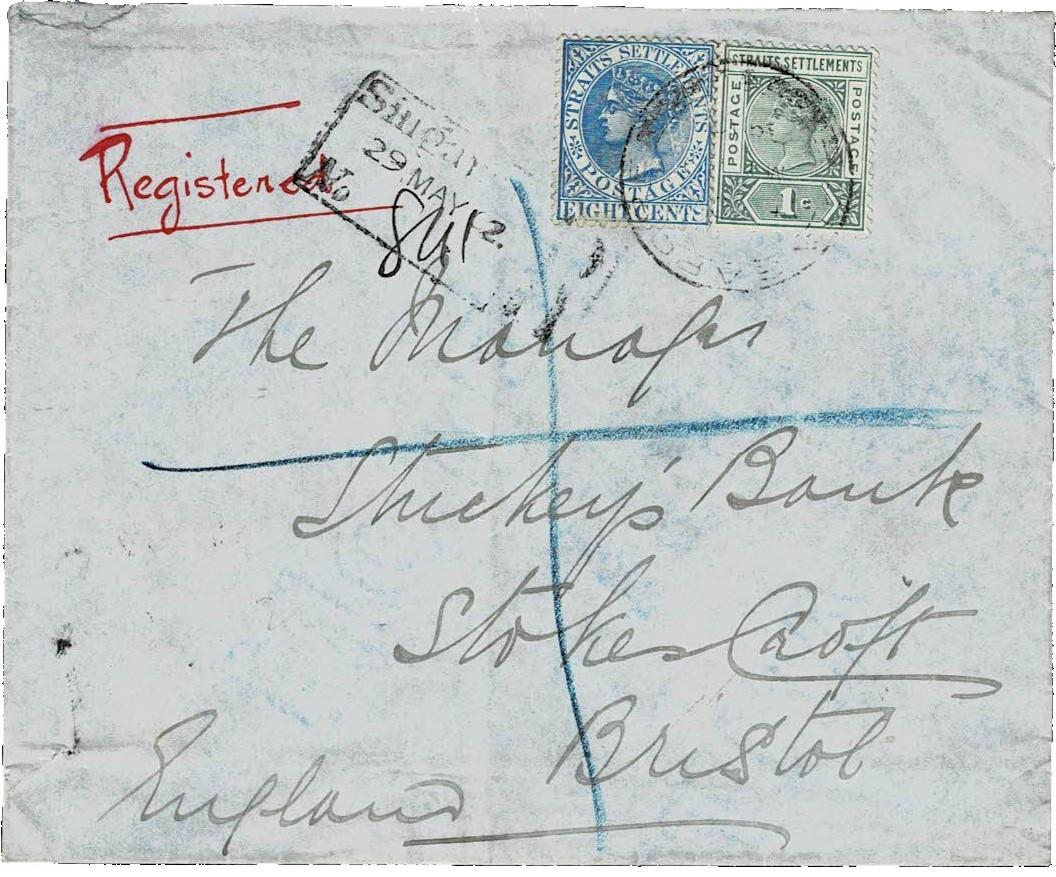 STRAITS SETTLEMENTS
POSTAGE
EIGHT CENTS
STRAITS SETTLEMENTS
POSTAGE
POSTAGE
1 c
Registered
29 MAY
No
The Manager
Stuckey's Bank
Stokes Croft
Bristol
England